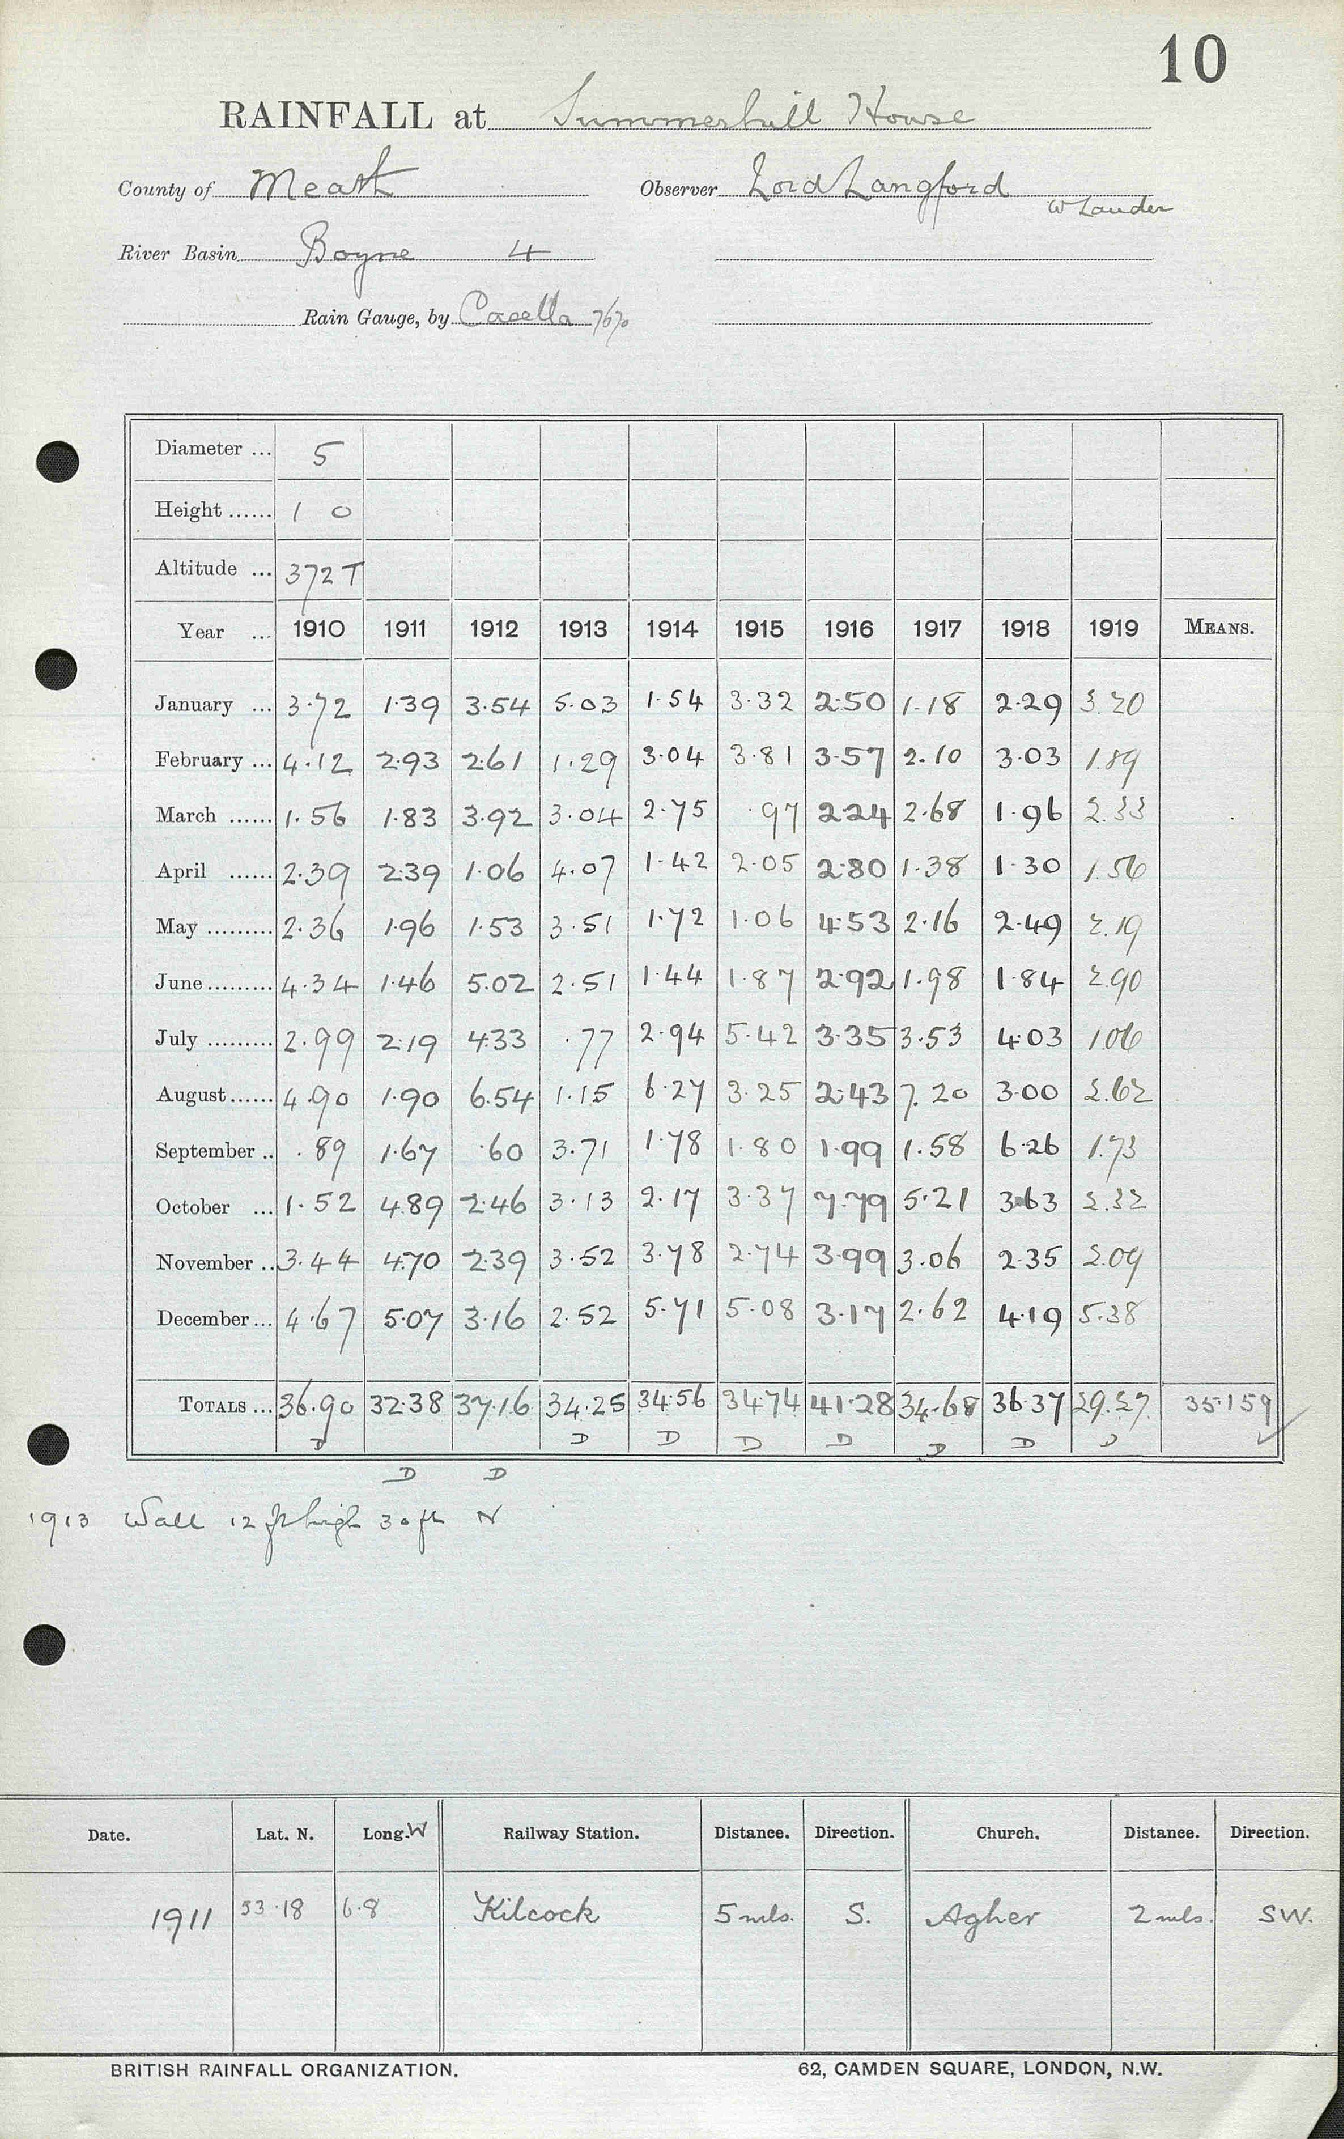 10
RAINFALL at Summerhill House
County of Meath Observer Lord Langford
W Lauder
River Basin Boyne 4
Rain Gauge, by Casella 7670
Diameter ... 5
Height ...... 1 0
Altitude ... 372 T
Year ... 1910 1911 1912 1913 1914 1915 1916 1917 1918 1919 MEANS.
January ... 3.72 1.39 3.54 5.03 1.54 3.32 2.50 1.18 2.29 3.20
February ... 4.12 2.93 2.61 1.29 3.04 3.81 3.57 2.10 3.03 1.89
March ...... 1.56 1.83 3.92 3.04 2.75 .97 2.24 2.68 1.96 2.33
April ...... 2.39 2.39 1.06 4.07 1.42 2.05 2.80 1.38 1.30 1.56
May ......... 2.36 1.96 1.53 3.51 1.72 1.06 4.53 2.16 2.49 2.19
June ......... 4.34 1.46 5.02 2.51 1.44 1.87 2.92 1.98 1.84 2.90
July ......... 2.99 2.19 4.33 .77 2.94 5.42 3.35 3.53 4.03 1.06
August ...... 4.90 1.90 6.54 1.15 6.27 3.25 2.43 7.20 3.00 2.62
September .. .89 1.67 .60 3.71 1.78 1.80 1.99 1.58 6.26 1.73
October ... 1.52 4.89 2.46 3.13 2.17 3.37 7.79 5.21 3.63 2.32
November .. 3.44 4.70 2.39 3.52 3.78 2.74 3.99 3.06 2.35 2.09
December ... 4.67 5.07 3.16 2.52 5.71 5.08 3.17 2.62 4.19 5.38
TOTALS ... 36.90 32.38 37.16 34.25 34.56 34.74 41.28 34.68 36.37 29.27 35.159
D D D D D D D D
D D
1913 Wall 12 ft high 30 ft N
Date. Lat. N. Long. W Railway Station. Distance. Direction. Church. Distance. Direction.
1911 53.18 6.8 Kilcock 5 mls. S. Agher 2 mls. SW.
BRITISH RAINFALL ORGANIZATION. 62, CAMDEN SQUARE, LONDON, N.W.